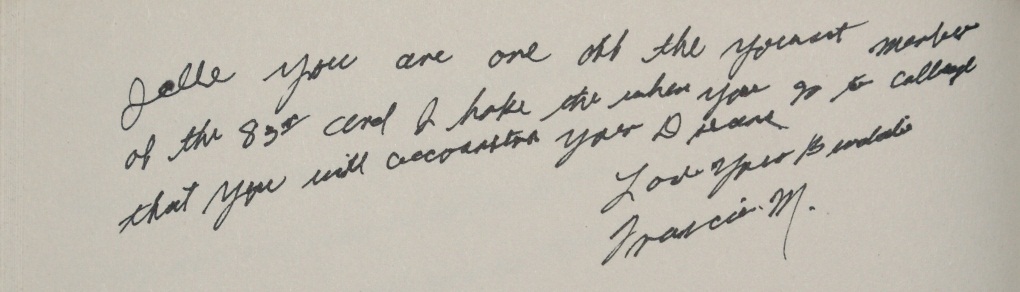 Jalle you are one off the youngst member
of the 83rd and I hope the when you go to collage
that you will accomplish your Dreams
Love Your Buddie
Francis M.